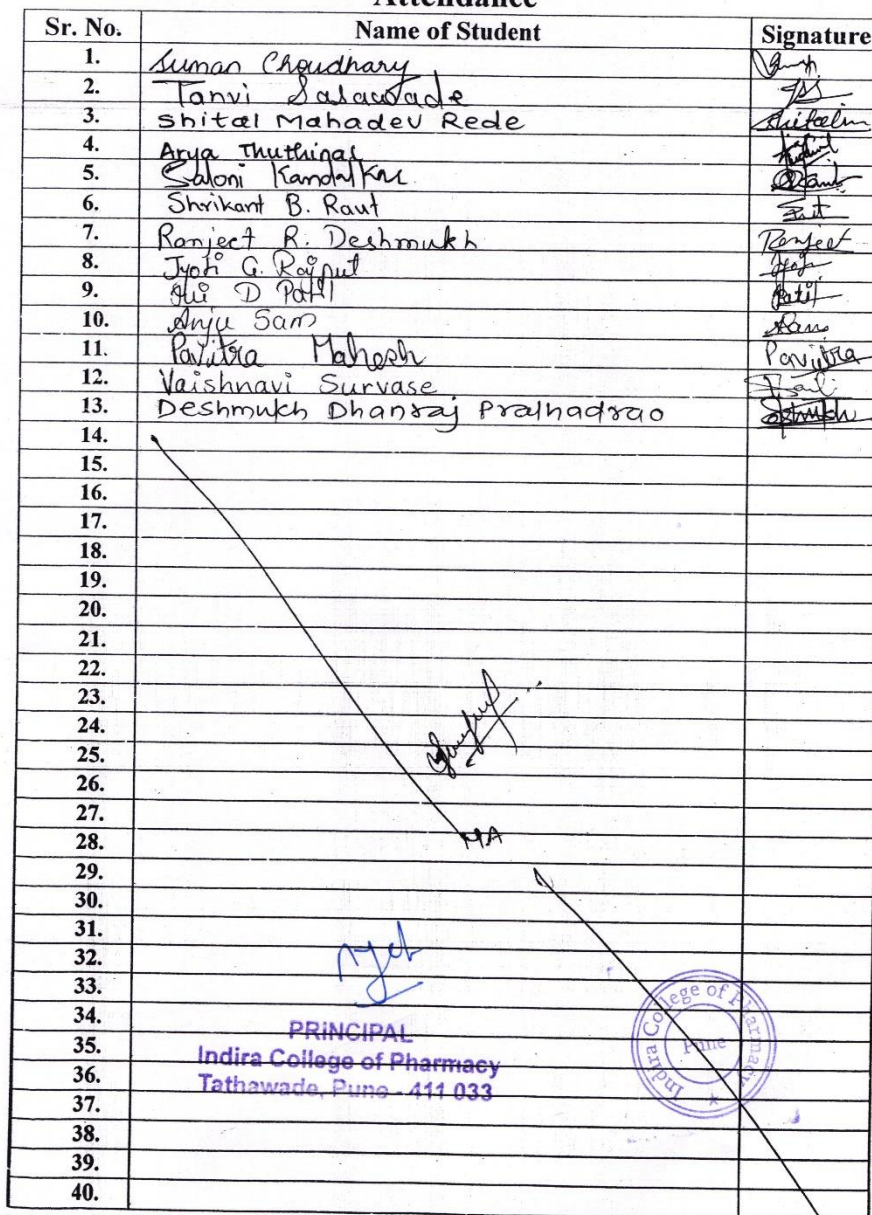 Attendance
Sr. No. Name of Student Signature
1. Suman Choudhary
2. Tanvi Salawade
3. Shital Mahadev Rede
4. Arya Thuthinas
5. Saloni Kandalkar
6. Shrikant B. Raut
7. Ranjeet R. Deshmukh Ranjeet
8. Jyoti G. Rajput
9. D Patil Patil
10. Anju Sam Sam
11. Pavitra Mahesh Pavitra
12. Vaishnavi Survase
13. Deshmukh Dhanraj Pralhadrao
14.
15.
16.
17.
18.
19.
20.
21.
22.
23.
24.
25.
26.
27.
28. NA
29.
30.
31.
32.
33.
34.
35.
36.
37.
38.
39.
40.
PRiNCIPAL
Indira College of Pharmacy
Tathawade, Pune - 411 033
Indira College of Pharmacy
Pune